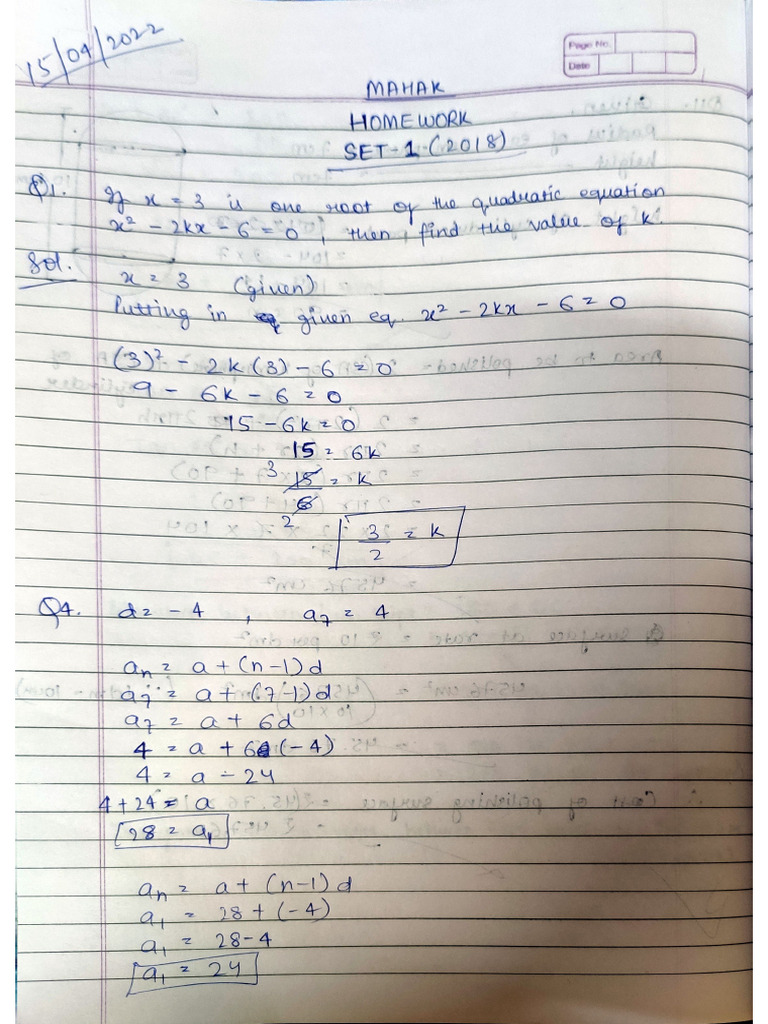 15/04/2022
Page No.
Date
MAHAK
HOMEWORK
SET-1-(2018)
Q1. If x = 3 is one root of the quadratic equation
x² - 2kx - 6 = 0, then, find the value of k.
Sol. x = 3 (given)
Putting in given eq. x² - 2kx - 6 = 0
(3)² - 2k(3) - 6 = 0
9 - 6k - 6 = 0
15 - 6k = 0
15 = 6k
3
15/6 = k
2
3/2 = k
Q4. d = -4 , a₇ = 4
aₙ = a + (n-1)d
a₇ = a + (7-1)d
a₇ = a + 6d
4 = a + 6(-4)
4 = a - 24
4 + 24 = a
28 = a₁
aₙ = a + (n-1)d
a₁ = 28 + (-4)
a₁ = 28 - 4
a₁ = 24